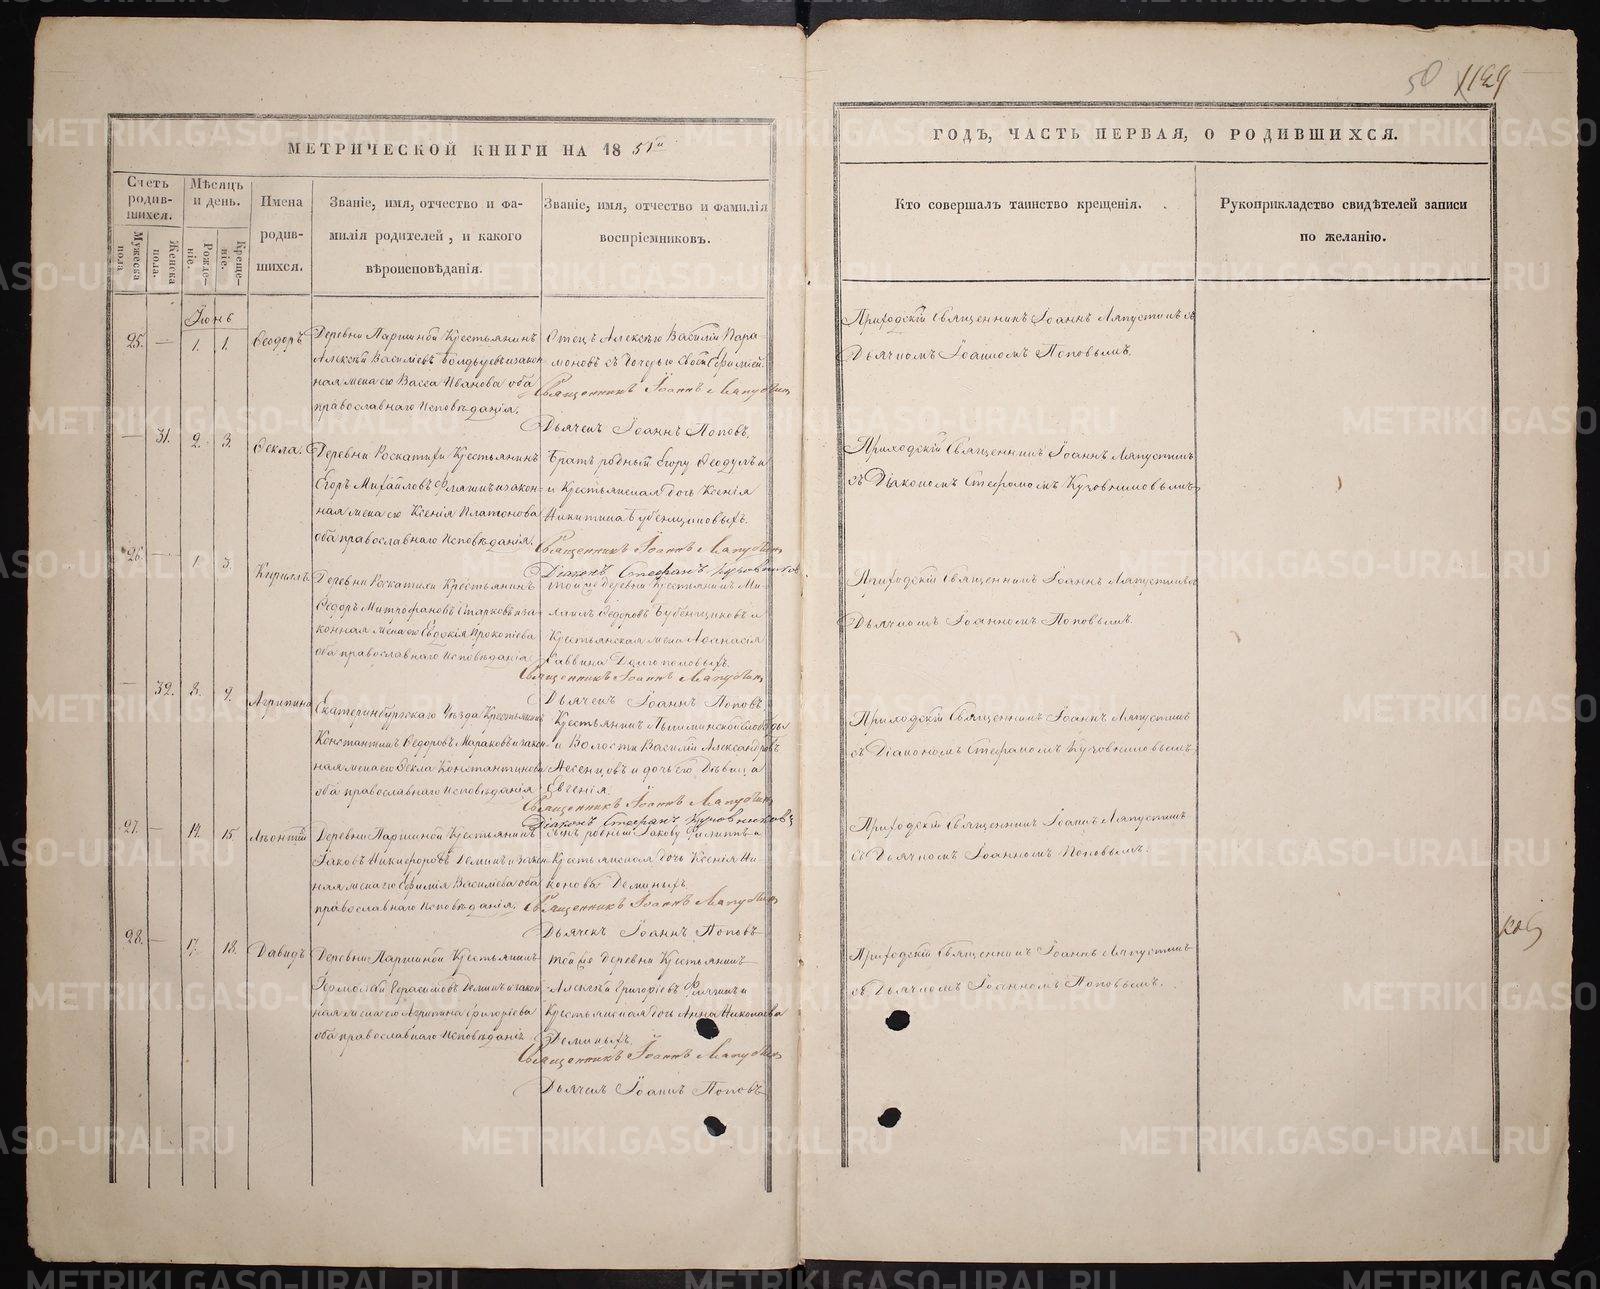 50 1129
МЕТРИЧЕСКОЙ КНИГИ НА 1851го
ГОДЪ, ЧАСТЬ ПЕРВАЯ, О РОДИВШИХСЯ.
Счетъ родив-шихся.
Мужеска пола
Женска пола.
Мѣсяцъ и день.
Рожде-ніе.
Креще-ніе.
Имена родив-шихся.
Званіе, имя, отчество и фа-
милія родителей, и какого
вѣроисповѣданія.
Званіе, имя, отчество и фамилія
воспріемниковъ.
Кто совершалъ таинство крещенія.
Рукоприкладство свидѣтелей записи
по желанію.
Іюнь
25. — 1. 1. Ѳеодоръ
Деревни Паршиной Крестьянинъ
Алексѣй Василіевъ Болдыревъ и закон
ная жена его Васса Иванова оба
православнаго Исповѣданія.
Отецъ Алексѣю Василій Пара
моновъ съ дочерью
Священникъ Іоаннъ Ляпустинъ
Дьячекъ Іоаннъ Поповъ.
Приходскій Священникъ Іоаннъ Ляпустинъ съ
Дьячкомъ Іоанномъ Поповымъ.
— 31. 2. 3. Ѳекла.
Деревни Роскатихи Крестьянинъ
Егоръ Михайловъ и закон=
ная жена его Ксенія Платонова
оба православнаго Исповѣданія.
Братъ родный Егору Ѳеодулъ и
Крестьянская дочь Ксенія
Никитина Бубенщиковыхъ.
Священникъ Іоаннъ Ляпустинъ
Діаконъ Стефанъ Кузовниковъ
Приходскій Священникъ Іоаннъ Ляпустинъ
съ Діакономъ Стефаномъ Кузовниковымъ
26. — 1. 3. Кириллъ
Деревни Роскатихи Крестьянинъ
Ѳедоръ Митрофановъ Старковъ и за-
конная жена его Евдокія Прокопіева
оба православнаго Исповѣданія
той же деревни Крестьянинъ Ми-
хаилъ Ѳедоровъ Бубенщиковъ и
Крестьянская жена Аѳанасія
Саввина Долгополовыхъ.
Священникъ Іоаннъ Ляпустинъ
Дьячекъ Іоаннъ Поповъ
Приходскій Священникъ Іоаннъ Ляпустинъ съ
Дьячкомъ Іоанномъ Поповымъ.
— 32. 8. 9. Агрипина
Екатеринбургскаго Уѣзда Крестьянинъ
Константинъ Ѳедоровъ и закон-
ная жена его Ѳекла Константинова
оба православнаго Исповѣданія
Крестьянинъ Пышминской Слободы
и Волости Василій Александровъ
и дочь его Дѣвица
Евгенія.
Священникъ Іоаннъ Ляпустинъ
Діаконъ Стефанъ Кузовниковъ
Приходскій Священникъ Іоаннъ Ляпустинъ
съ Діакономъ Стефаномъ Кузовниковымъ.
27. — 14. 15. Леонтій
Деревни Паршиной Крестьянинъ
Іаковъ Никифоровъ Деминъ и закон
ная жена его Евфимія Василіева оба
православнаго Исповѣданія.
сынъ родный Іакову Филиппъ и
Крестьянская дочь Ксенія Ни
конова Деминыхъ.
Священникъ Іоаннъ Ляпустинъ
Дьячекъ Іоаннъ Поповъ
Приходскій Священникъ Іоаннъ Ляпустинъ
съ Дьячкомъ Іоанномъ Поповымъ.
28. — 17. 18. Давидъ
Деревни Паршиной Крестьянинъ
Ермолай Герасимовъ Деминъ и закон
ная жена его Агрипина Григоріева
оба православнаго Исповѣданія
той же деревни Крестьянинъ
Алексѣй Григоріевъ и
Крестьянская дочь Анна Николаева
Деминыхъ.
Священникъ Іоаннъ Ляпустинъ
Дьячекъ Іоаннъ Поповъ
Приходскій Священникъ Іоаннъ Ляпустинъ
съ Дьячкомъ Іоанномъ Поповымъ.
METRIKI.GASO-URAL.RU